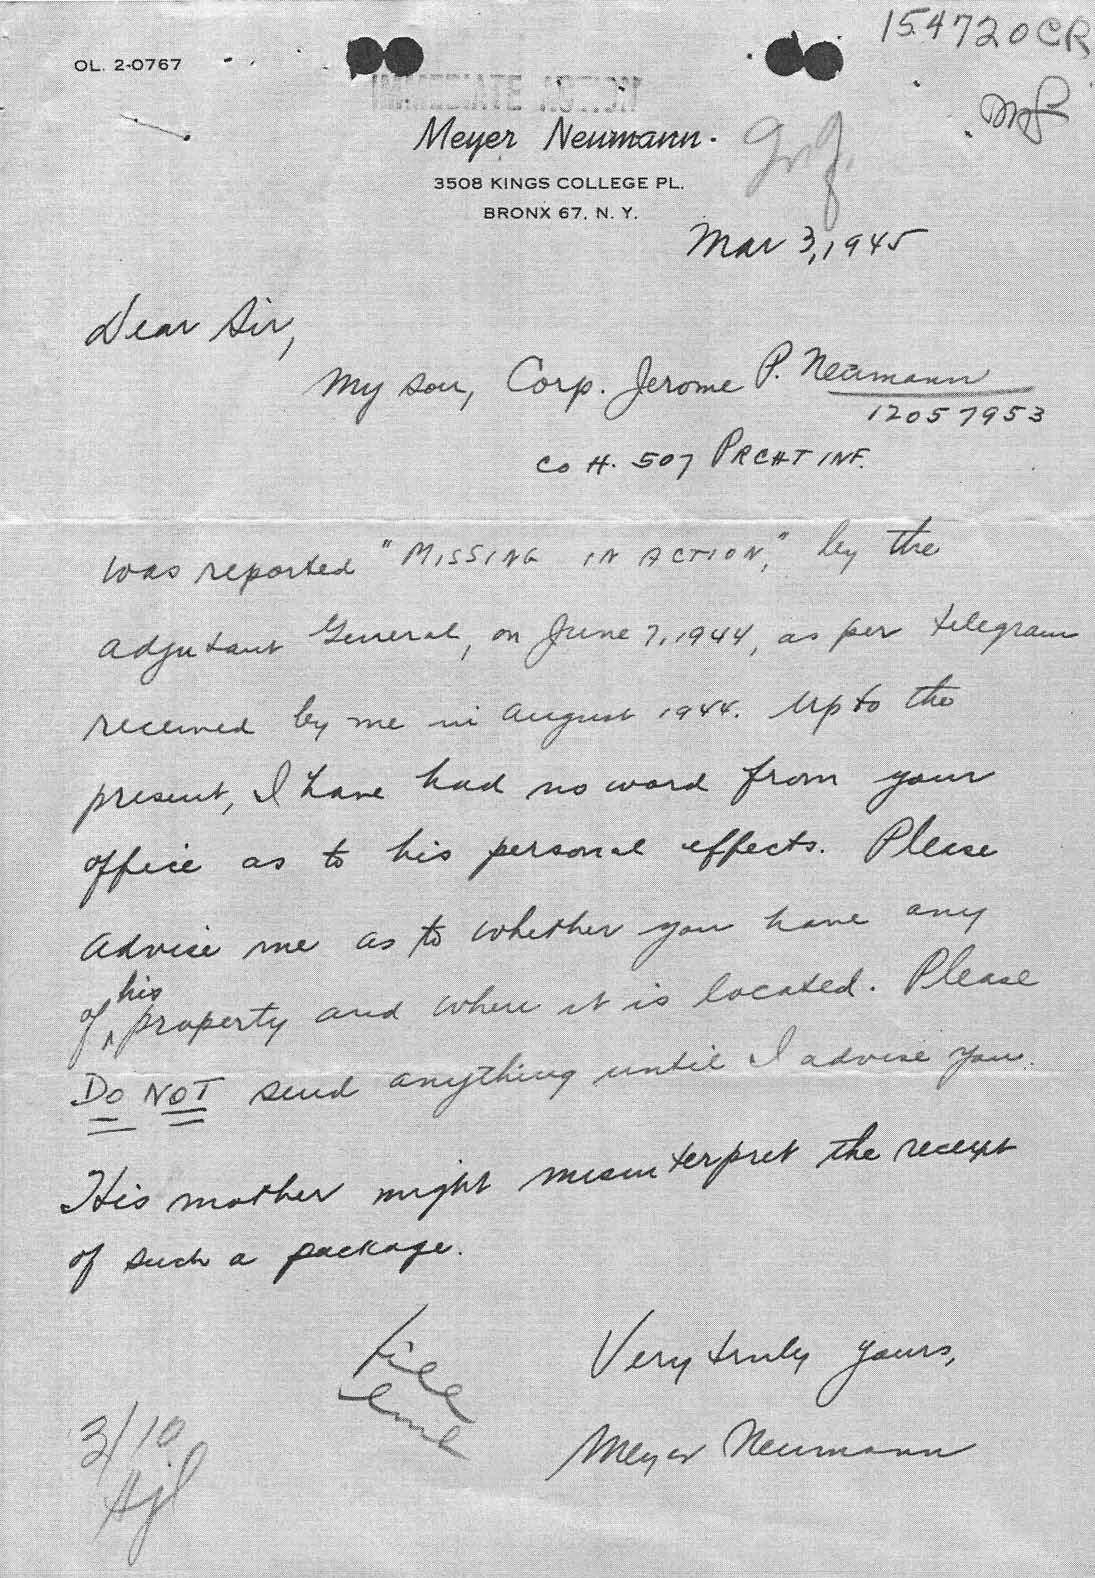 154720CR
OL. 2-0767
IMMEDIATE ACTION
Meyer Neumann
3508 KINGS COLLEGE PL.
BRONX 67, N. Y.
Mar 3, 1945
Dear Sir,
My son, Corp. Jerome P. Neumann
12057953
Co H. 507 PRCHT INF.
was reported "MISSING IN ACTION," by the
Adjutant General, on June 7, 1944, as per telegram
received by me in August 1944. Up to the
present, I have had no word from your
office as to his personal effects. Please
advise me as to whether you have any
of his property and where it is located. Please
DO NOT send anything until I advise you.
His mother might misinterpret the receipt
of such a package.
Very truly yours,
Meyer Neumann
File
3/10